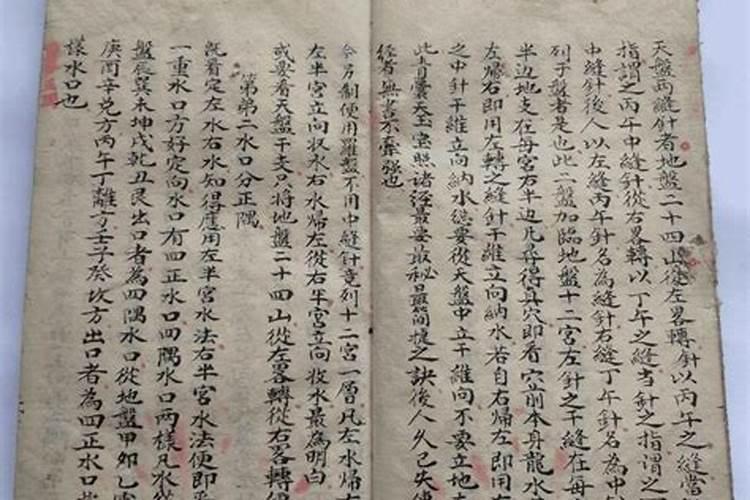 天盤丙縫針者地盤二十四山從左畧轉針以丙午之縫當
指謂之丙午中縫針從右畧轉以丁午之縫当針之指謂之
中縫針後人以左縫丙午針名為縫針右縫丁午針名為中
列于盤者是也此二盤加臨地盤十二宮左針之干縫在每
半邊地支在每宮右半邊凡尋得真穴即看穴前本身龍水
左歸右即用左轉之縫針干維立向納水若自右歸左即用右
之中針干維立向納水總要從天盤中立干維向不要立地支
此青囊天玉宝照諸經最要最秘最簡捷之訣後人久已失傳
經者無書不牽强也
今另制便用羅盤不用中縫針竟列十二宮一層凡左水歸右
左半宮立向收水右水歸左從右半宮立向收水最為明白
或要看天盤干支只將地盤二十四山從左畧轉從右畧轉
第弟二水口分正隅
既看定左水右水知得應用左半宮水法右半宮水法便即
一重水口方好定向水口有四正水口四隅水口兩樣凡水從
盤辰巽未坤戌乾丑艮出口者為四隅水口從地盤甲卯乙
庚酉辛兌方丙午丁離方壬子癸坎方出口者為四正水口
樣水口也